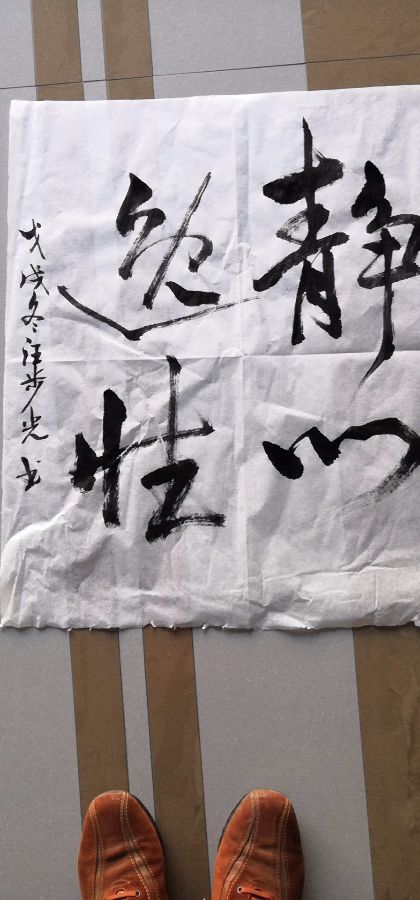 静心
逸性
戊戌冬汪步光书